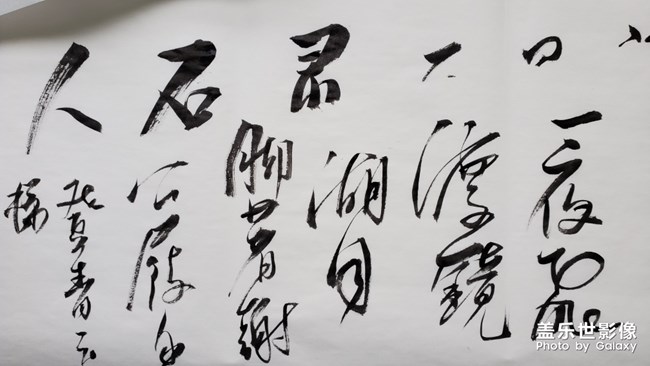 一夜飛
渡鏡
湖月
脚著謝
石
公屐身
人
登青云
梯
盖乐世影像
Photo by Galaxy